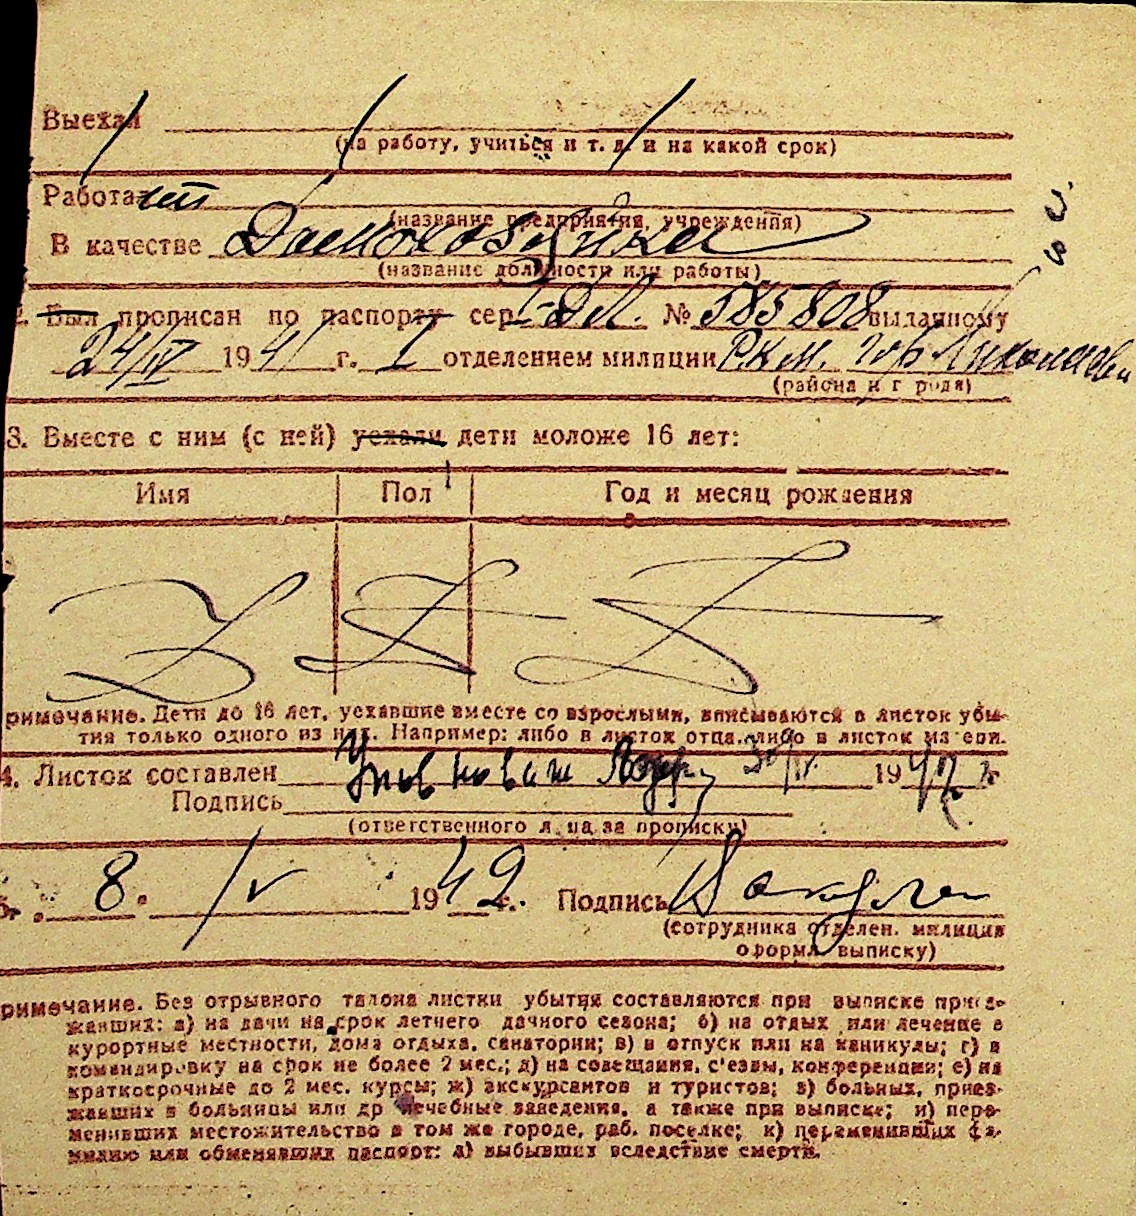 Выехал
(на работу, учиться и т. д. и на какой срок)
Работает
(название предприятия, учреждения)
В качестве Домохозяйка
(название должности или работы)
2. Был прописан по паспорту сер. ДЛ. № 585808 выданному
24/IV 1941 г. 1 отделением милиции Р.К.М. гор Николаев
(района и города)
3. Вместе с ним (с ней) уехали дети моложе 16 лет:
Имя Пол Год и месяц рождения
Примечание. Дети до 16 лет, уехавшие вместе со взрослыми, вписываются в листок убы-
тия только одного из них. Например: либо в листок отца, либо в листок матери.
4. Листок составлен 30/IV 1942 г.
Подпись
(ответственного лица за прописку)
5. 8. /V 1942 г. Подпись
(сотрудника отделен. милиции
оформл. выписку)
Примечание. Без отрывного талона листки убытия составляются при выписке приез-
жавших: а) на дачи на срок летнего дачного сезона; б) на отдых или лечение в
курортные местности, дома отдыха, санатории; в) в отпуск или на каникулы; г) в
командировку на срок не более 2 мес.; д) на совещания, с'езды, конференции; е) на
краткосрочные до 2 мес. курсы; ж) экскурсантов и туристов; з) больных, приез-
жавших в больницы или др лечебные заведения, а также при выписке; и) пере-
менивших местожительство в том же городе, раб. поселке; к) переменивших фа-
милию или обменявших паспорт; л) выбывших вследствие смерти.